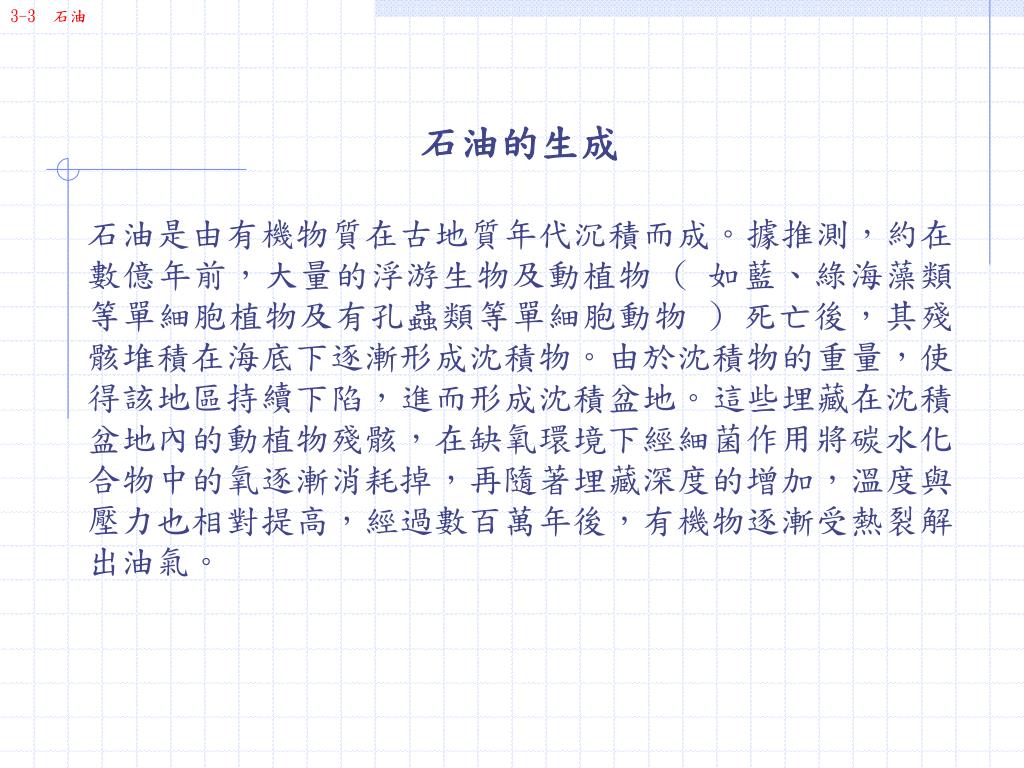 3-3 石油
石油的生成
石油是由有機物質在古地質年代沉積而成。據推測，約在
數億年前，大量的浮游生物及動植物（ 如藍、綠海藻類
等單細胞植物及有孔蟲類等單細胞動物 ）死亡後，其殘
骸堆積在海底下逐漸形成沈積物。由於沈積物的重量，使
得該地區持續下陷，進而形成沈積盆地。這些埋藏在沈積
盆地內的動植物殘骸，在缺氧環境下經細菌作用將碳水化
合物中的氧逐漸消耗掉，再隨著埋藏深度的增加，溫度與
壓力也相對提高，經過數百萬年後，有機物逐漸受熱裂解
出油氣。